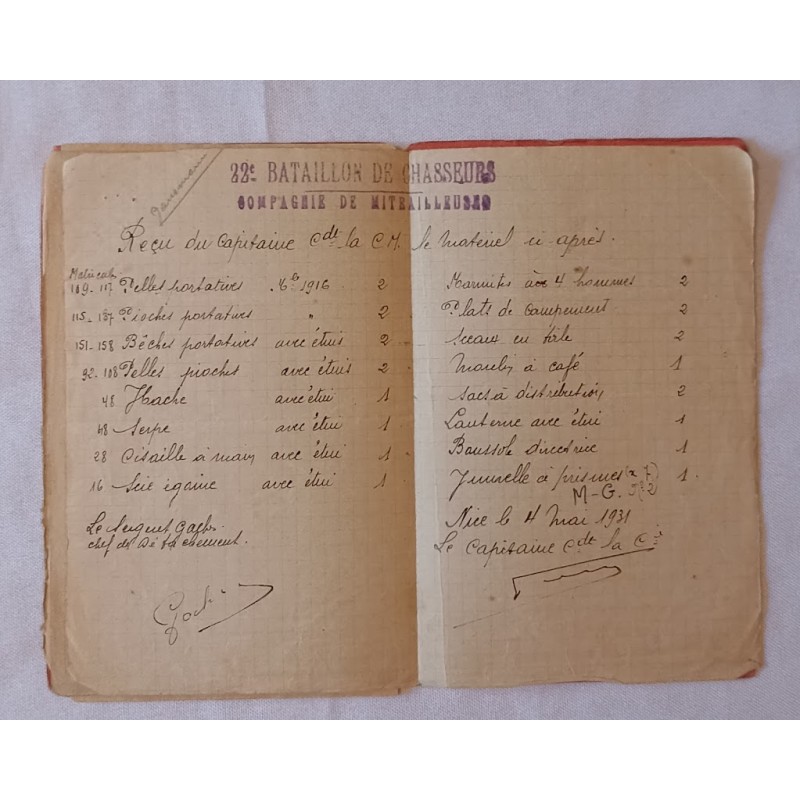 22e BATAILLON DE CHASSEURS
COMPAGNIE DE MITRAILLEUSES
Reçu du Capitaine Cdt la C.M. le matériel ci-après.
Matricules
109-117 Pelles portatives Mle 1916 2
115-137 Pioches portatives " 2
151-158 Bêches portatives avec étuis 2
92-108 Pelles pioches avec étuis 2
48 Hache avec étui 1
48 Serpe avec étui 1
28 Cisaille à main avec étui 1
16 Scie égoïne avec étui 1
Le Sergent
chef de Détachement.
Marmites à 4 hommes 2
Plats de campement 2
Sceaux en toile 2
Moulin à café 1
Sacs à distribution 2
Lanterne avec étui 1
Boussole directrice 1
Jumelle à prismes (x 7) 1
M-G.
Nice le 4 Mai 1931
Le Capitaine Cdt la Cie